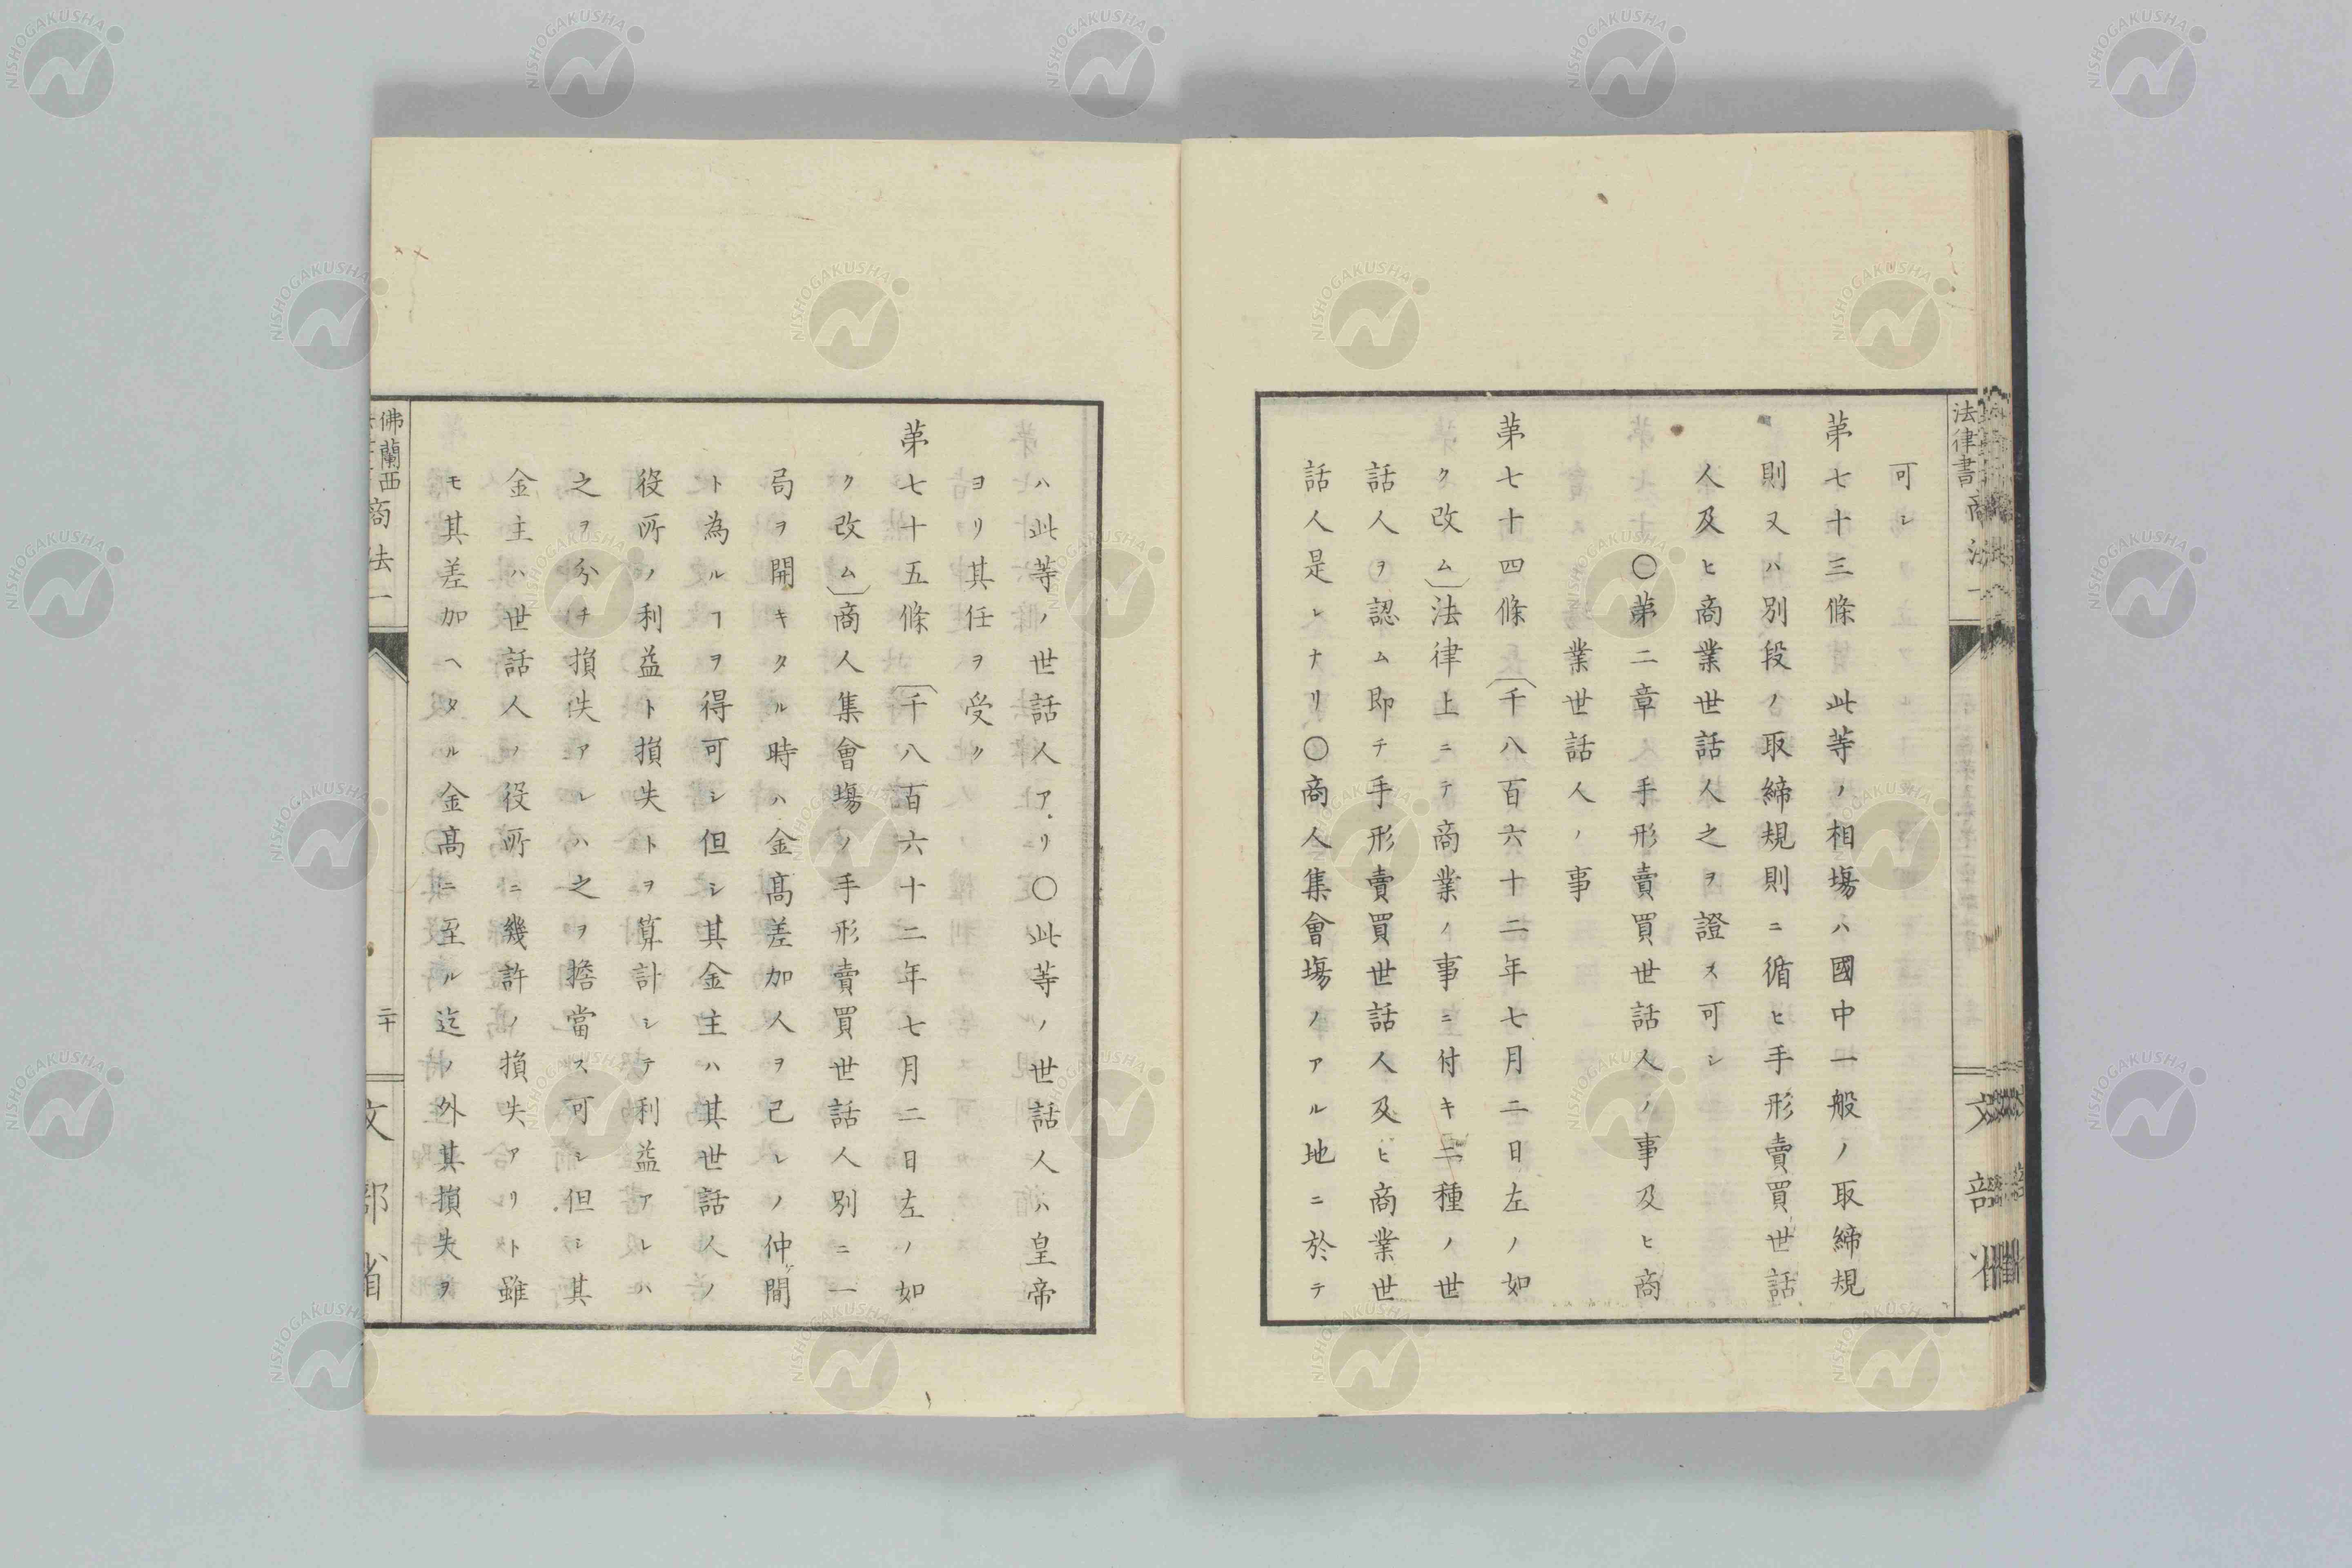 可シ
第七十三條　此等ノ相塲ハ國中一般ノ取締規
則又ハ別段ノ取締規則ニ循ヒ手形賣買世話
人及ヒ商業世話人之ヲ證ス可シ
〇第二章　手形賣買世話人ノ事及ヒ商
業世話人ノ事
第七十四條　(千八百六十二年七月二日左ノ如
ク改ム)法律上ニテ商業ノ事ニ付キ二種ノ世
話人ヲ認ム即チ手形賣買世話人及ヒ商業世
話人是レナリ〇商人集會塲ノアル地ニ於テ
法律書
商法一
文部省
ハ此等ノ世話人アリ〇此等ノ世話人ハ皇帝
ヨリ其任ヲ受ク
第七十五條　(千八百六十二年七月二日左ノ如
ク改ム)商人集會塲ノ手形賣買世話人別ニ一
局ヲ開キタル時ハ金髙差加人ヲ己レノ仲間
ト為ルヿヲ得可シ但シ其金主ハ其世話人ノ
役所ノ利益ト損失トヲ算計シテ利益アレハ
之ヲ分チ損失アレハ之ヲ擔當ス可シ但シ其
金主ハ世話人ノ役所ニ幾許ノ損失アリト雖
モ其差加ヘタル金髙ニ至ル迄ノ外其損失ヲ
佛蘭西
商法一
二十
文部省
NISHOGAKUSHA